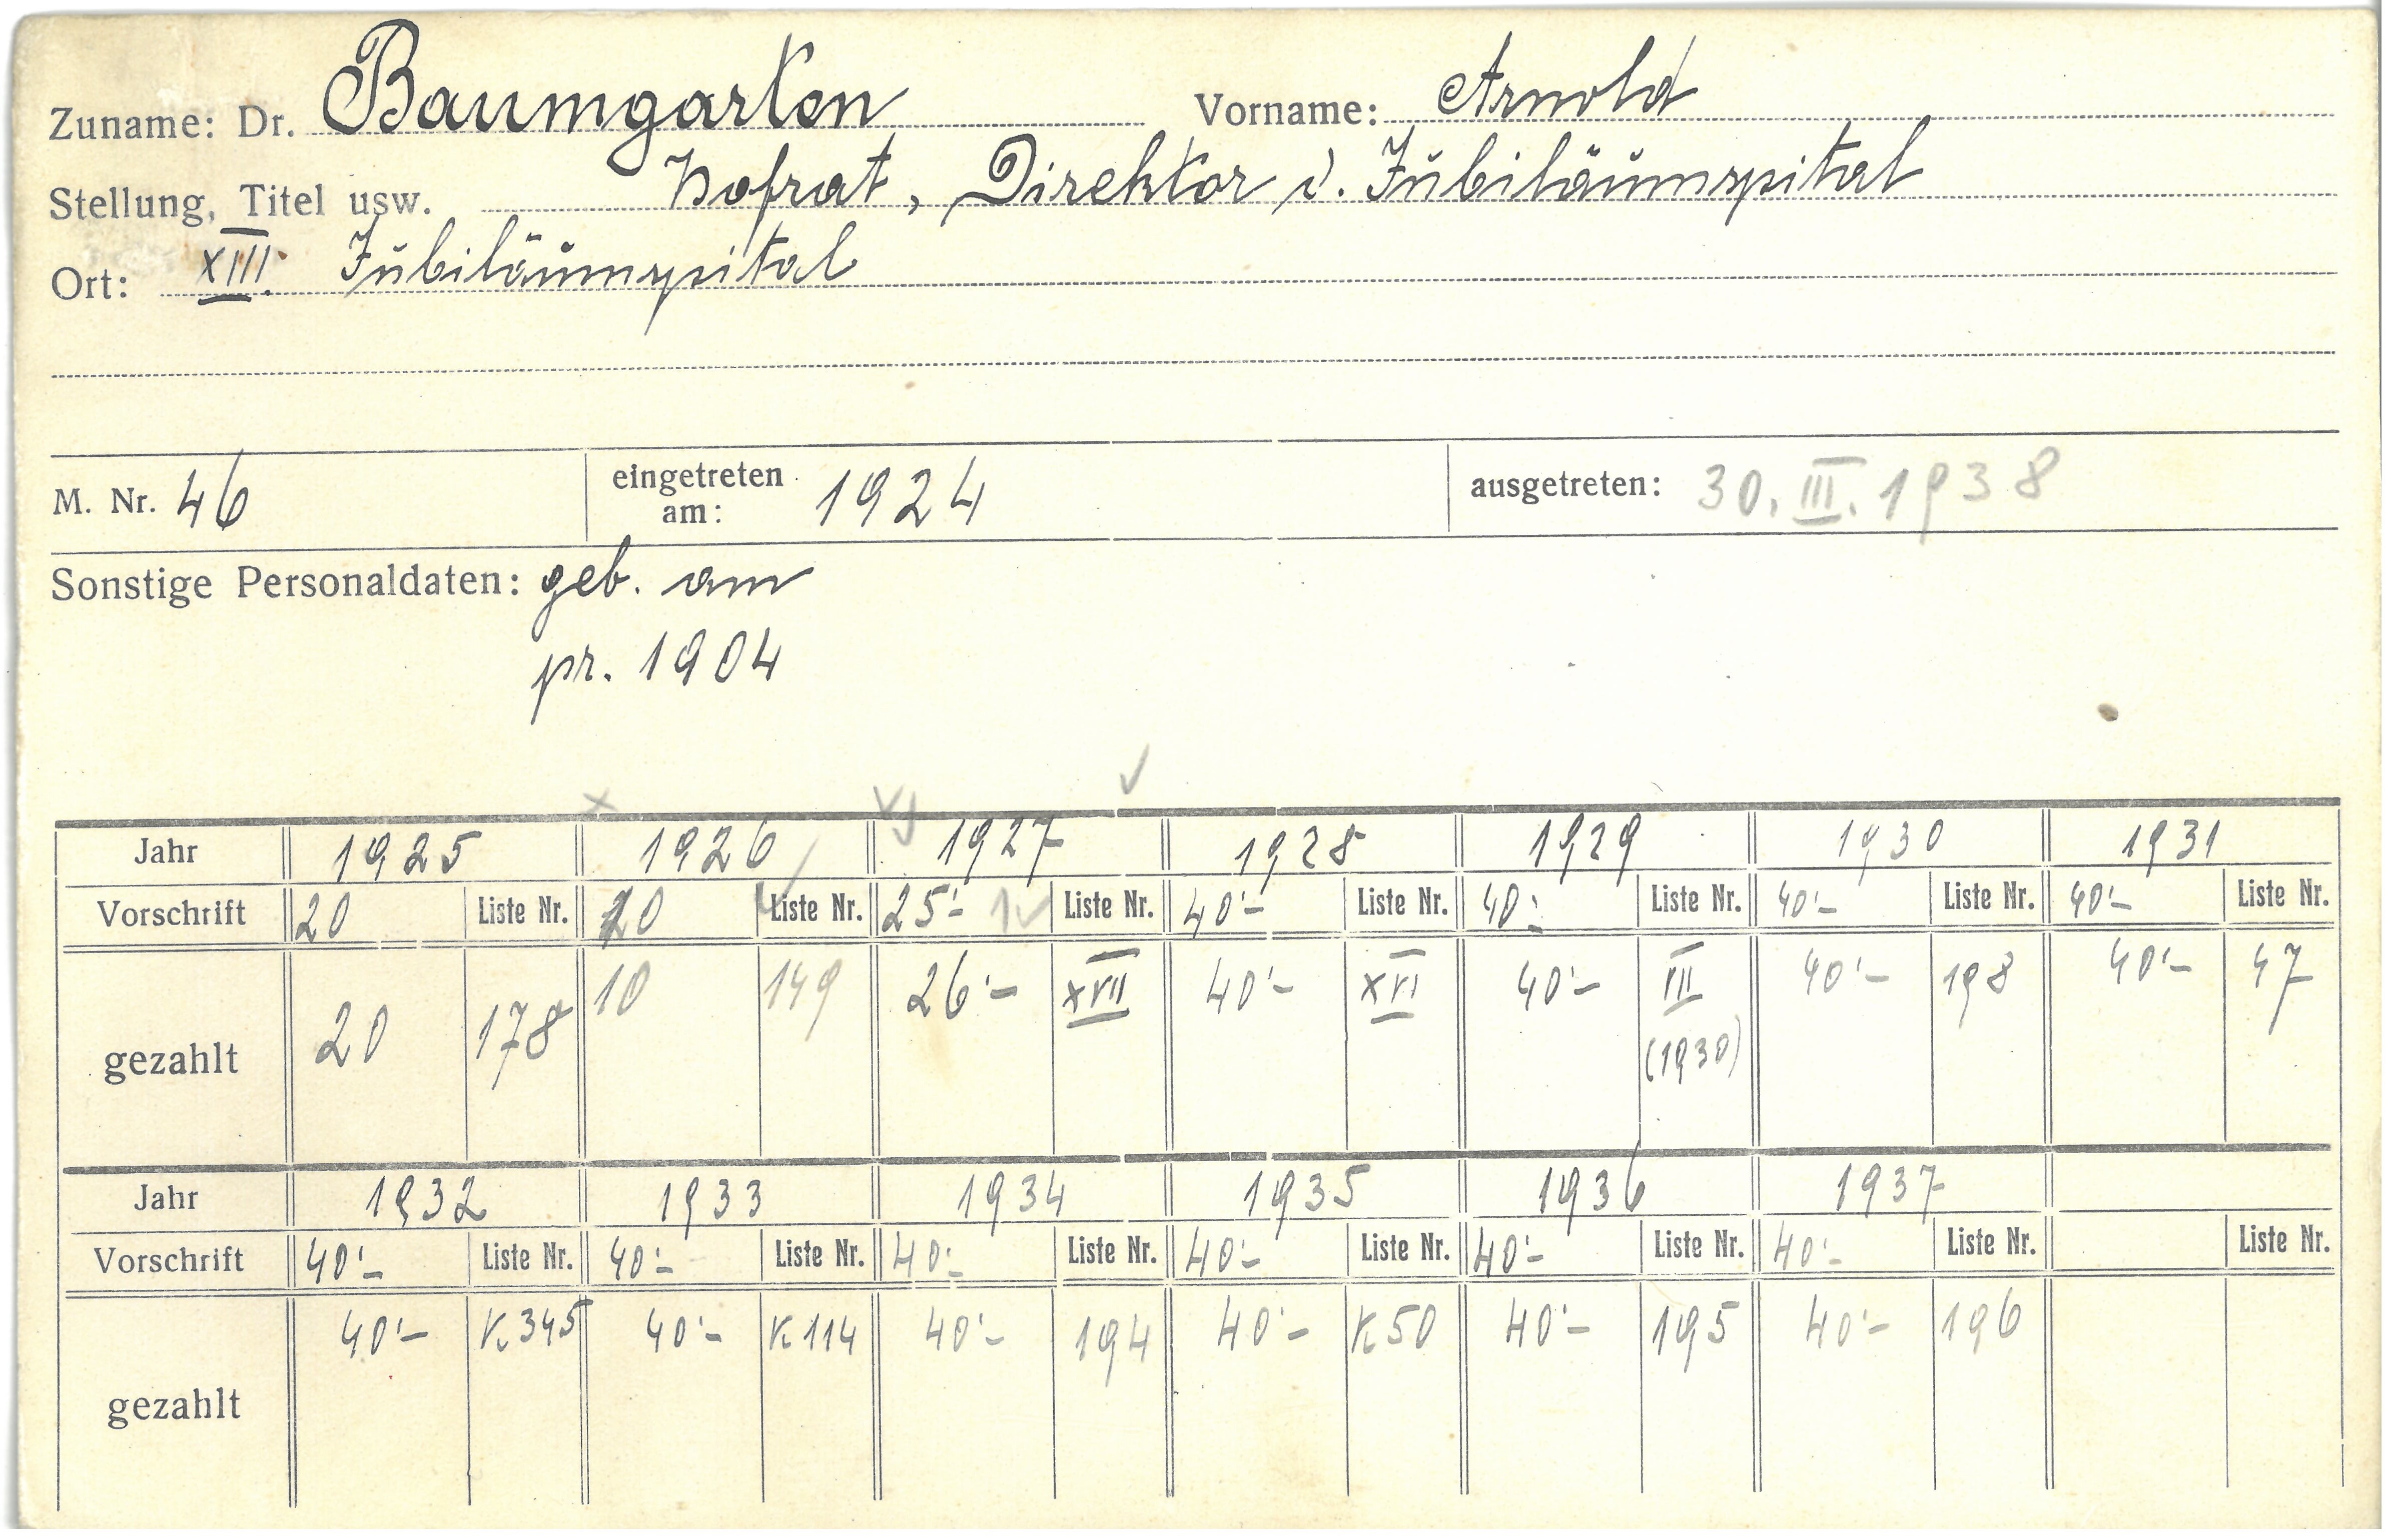 Zuname: Dr. Baumgarten Vorname: Arnold
Stellung, Titel usw. Hofrat, Direktor d. Jubiläumspital
Ort: XIII. Jubiläumspital
M. Nr. 46 eingetreten am: 1924 ausgetreten: 30. III. 1938
Sonstige Personaldaten: geb. am
pr. 1904
Jahr 1925 1926 1927 1928 1929 1930 1931
Vorschrift 20 Liste Nr. 20 Liste Nr. 25'- Liste Nr. 40'- Liste Nr. 40'- Liste Nr. 40'- Liste Nr. 40'- Liste Nr.
gezahlt 20 178 10 149 26'- XVII 40'- XVI 40'- III 40'- 198 40'- 47
(1930)
Jahr 1932 1933 1934 1935 1936 1937
Vorschrift 40'- Liste Nr. 40'- Liste Nr. 40'- Liste Nr. 40'- Liste Nr. 40'- Liste Nr. 40'- Liste Nr. Liste Nr.
gezahlt 40'- K 345 40'- K 114 40'- 194 40'- K 50 40'- 195 40'- 196